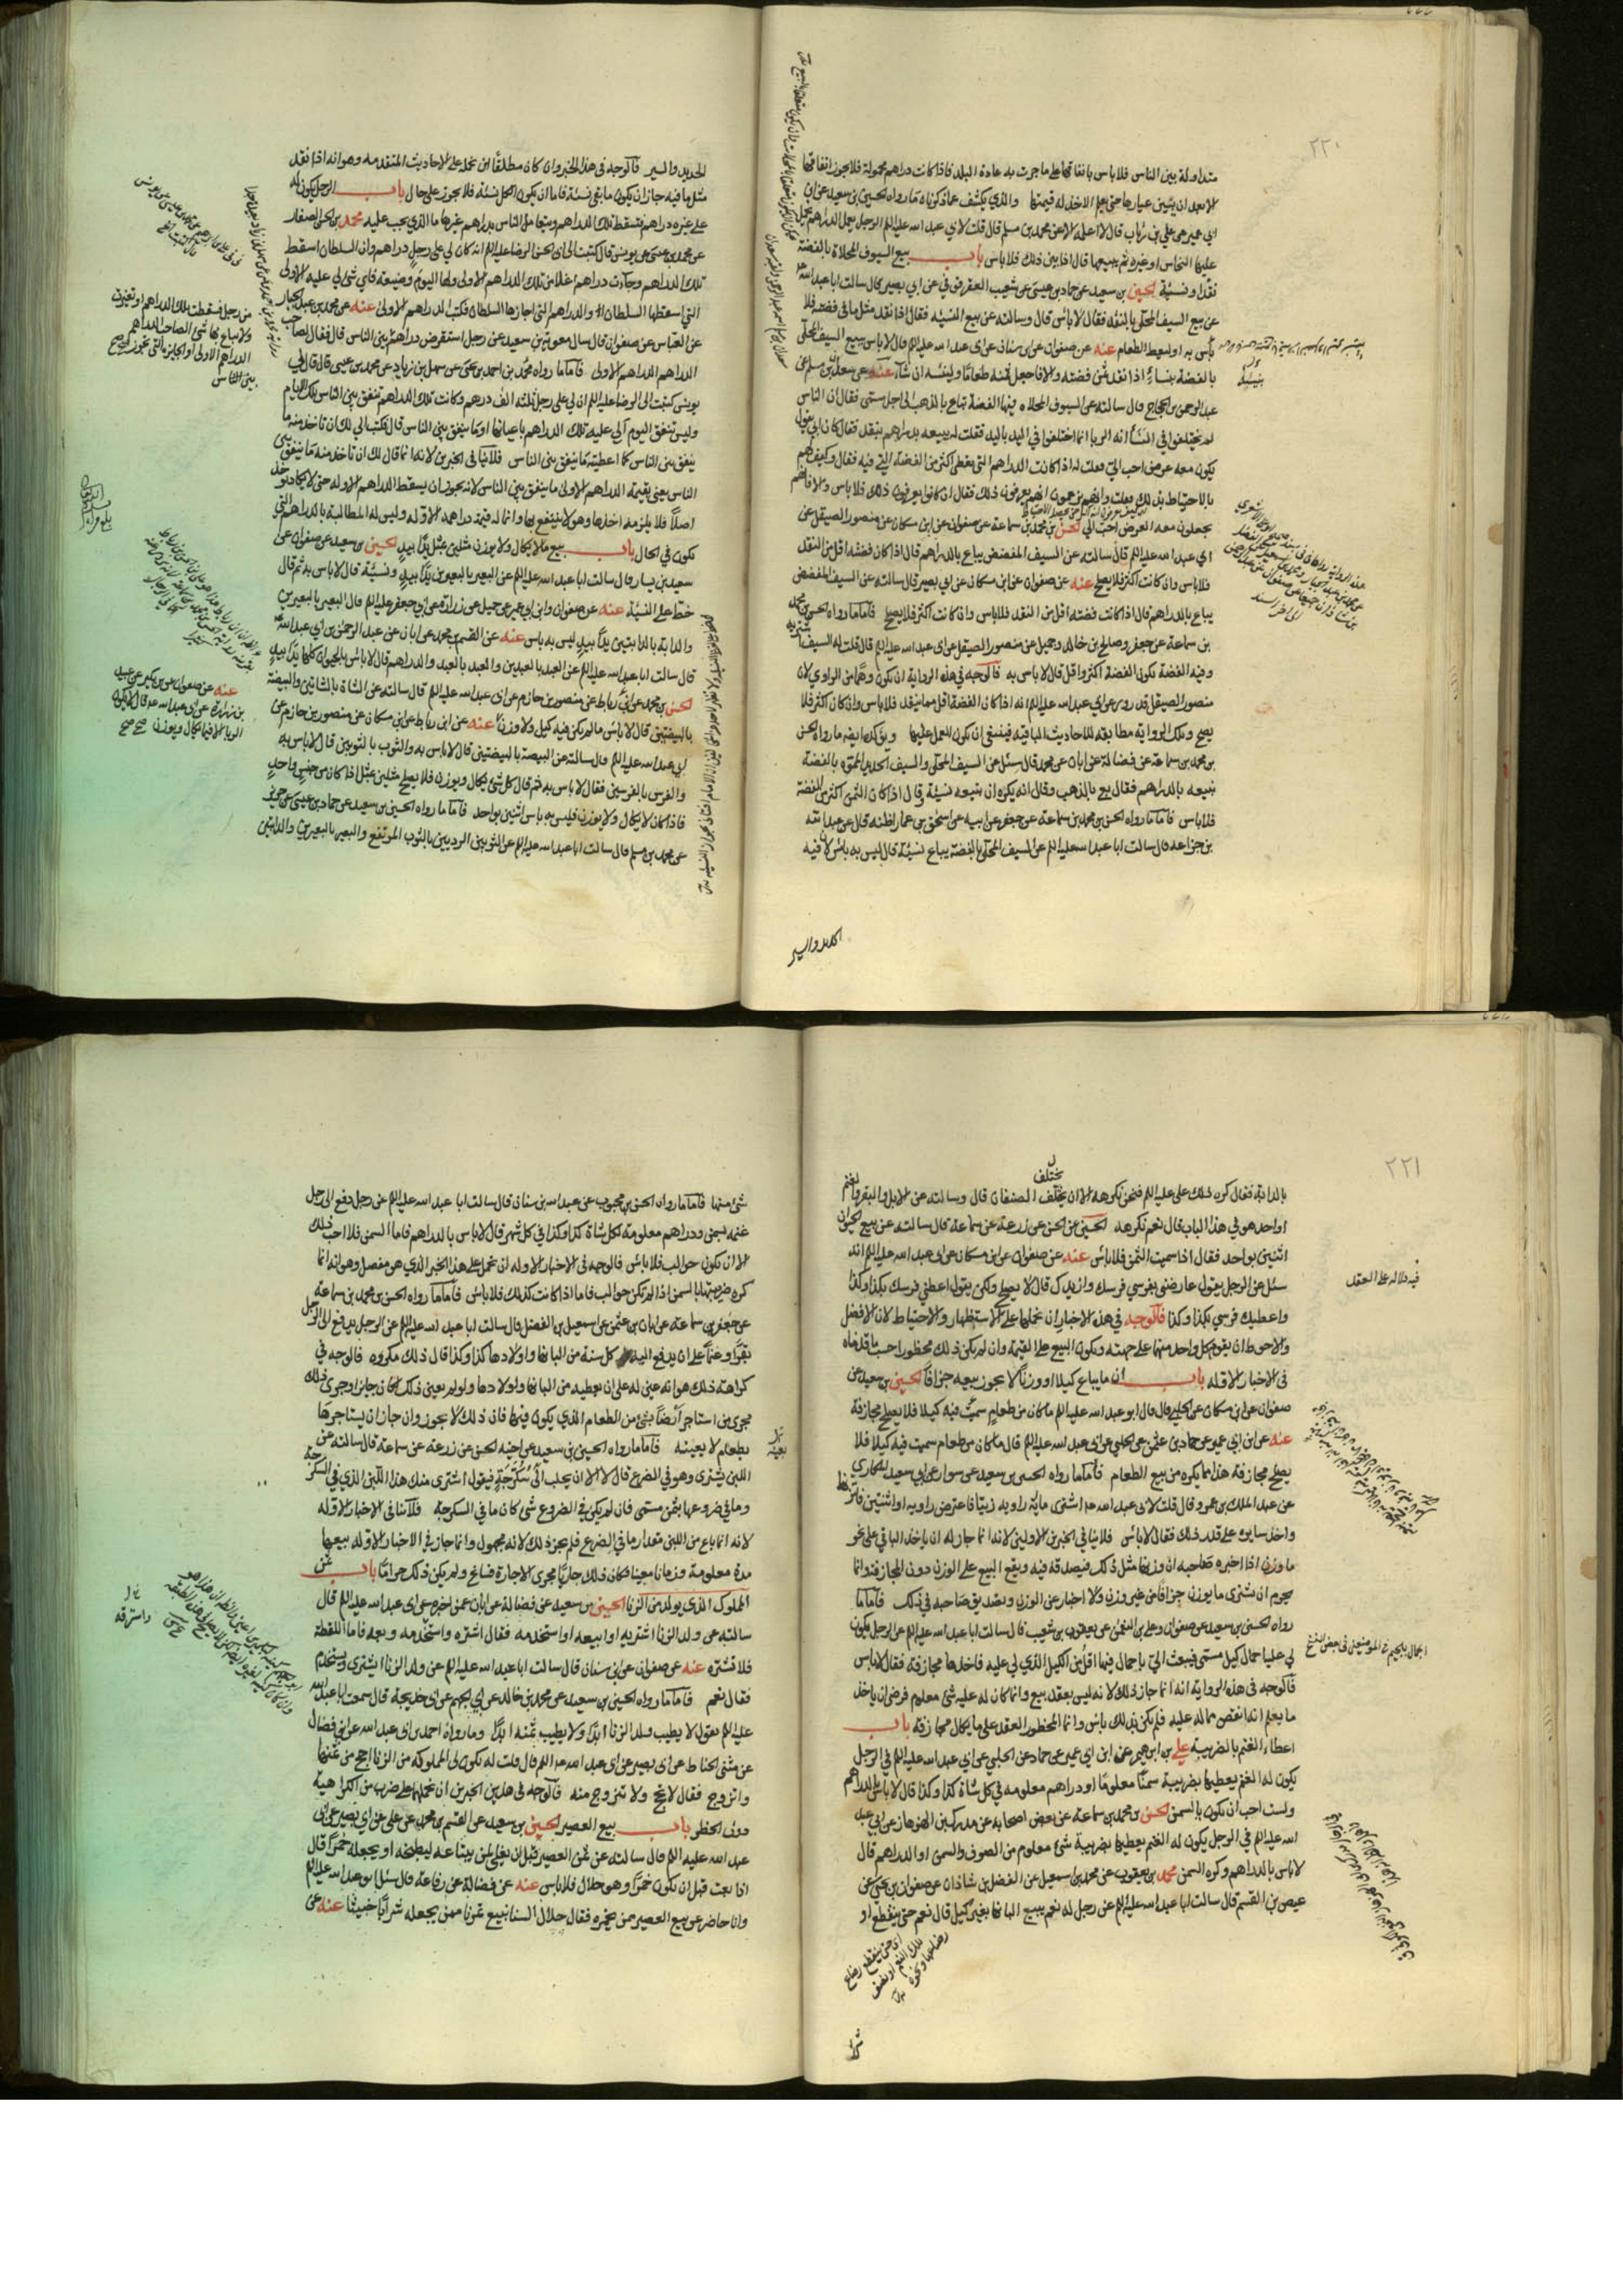 ٢٢٠
متداولة بين الناس فلا باس بانفاقها على ما جرت به عادة البلد فاذا كانت دراهم مجهولة فلا يجوز انفاقها
الا بعد ان يتبين عيارها حتى يعلم الاخذ له قيمتها والذي يكشف عما ذكرناه ما رواه الحسين بن سعيد عن ابن
ابي عمير عن علي بن رئاب قال لا اعلمه الا عن محمد بن مسلم قال قلت لابي عبد الله عليه الم الرجل يعمل الدراهم يحمل
عليها النحاس او غيره ثم يبيعها قال اذا بين ذلك فلا باس باب بيع السيوف المحلاة بالفضة
نقدا ونسيئة الحسين بن سعيد عن حماد بن عيسى عن شعيب العقرقوفي عن ابي بصير قال سالت ابا عبد الله
عن بيع السيف المحلى بالنقد فقال لا باس قال وسالته عن بيع النسيئة فقال اذا نقد مثل ما في فضته فلا
باس به او ليعط الطعام عنه عن صفوان عن ابن سنان عن ابي عبد الله عليه الم قال لا باس ببيع السيف المحلى
بالفضة بنساء اذا نقد ثمن فضته والا فاجعل ثمنه طعاما ولينسه ان شاء
عبد الرحمن بن الحجاج قال سالته عن السيوف المحلاه فيها الفضة تباع بالذهب الى اجل مسمى فقال ان الناس
لم يختلفوا في النسأ انه الربا انما اختلفوا في اليد باليد فقلت له يبيعه بدراهم بنقد فقال كان ابي يقول
يكون معه عرض احب الي فقلت له اذا كانت الدراهم التي تعطى اكثر من الفضة التي فيه فقال وكيف لهم
بالاحتياط بذلك فقلت فانهم يزعمون انهم يعرفون ذلك فقال ان كانوا يعرفون ذلك فلا باس والا فانهم
يجعلون معه العرض احب الي الحسن بن محمد بن سماعة عن صفوان عن ابن مسكان عن منصور الصيقل عن
ابي عبد الله عليه الم قال سالته عن السيف المفضض يباع بالدراهم قال اذا كان فضته اقل من النقد
فلا باس وان كانت اكثر فلا يصلح عنه عن صفوان عن ابن مسكان عن ابي بصير قال سالته عن السيف المفضض
يباع بالدراهم قال اذا كانت فضته اقل من النقد فلا باس وان كانت اكثر فلا يصلح فاما ما رواه الحسن بن محمد
بن سماعة عن جعفر وصالح بن خالد وجميل عن منصور الصيقل عن ابي عبد الله عليه الم قال قلت له السيف اشتريه
وفيه الفضة تكون الفضة اكثر او اقل قال لا باس به فالوجه في هذه الرواية ان يكون وهما من الراوي لان
منصور الصيقل قد روى عن ابي عبد الله عليه الم انه اذا كان الفضة اقل مما ينقد فلا باس وان كان اكثر فلا
يصح وتلك الرواية مطابقة للاحاديث الباقية فينبغي ان يكون العمل عليها ويؤكد ايضا ما رواه الحسن
بن محمد بن سماعة عن فضالة عن ابان عن محمد قال سئل عن السيف المحلى والسيف الحديد المموه بالفضة
نبيعه بالدراهم فقال بع بالذهب وقال انه يكره ان تبيعه نسيئة وقال اذا كان الثمن اكثر من الفضة
فلا باس فاما ما رواه الحسن بن محمد بن سماعة عن جعفر عن ابيه عن اسحق بن عمار اظنه قال عن عبد الله
بن جذاعه قال سالت ابا عبد الله عليه الم عن السيف المحلى بالفضة يباع نسيئة قال ليس به باس لان فيه
الحديد والسير
الحديد والسير فالوجه في هذا الخبر وان كان مطلقا ان نحمله على الاحاديث المتقدمه وهو انه اذا نقد
مثل ما فيه جاز ان يكون ما بقي نسئة فاما ان يكون الكل نسئة فلا يجوز على حال باب الرجل يكون له
على غيره دراهم فتسقط تلك الدراهم ويتعامل الناس بدراهم غيرها ما الذي يجب عليه محمد بن الحسن الصفار
عن محمد بن عيسى عن يونس قال كتبت الى ابي الحسن الرضا عليه الم انه كان لي على رجل دراهم وان السلطان اسقط
تلك الدراهم وجاءت دراهم اعلا من تلك الدراهم الاولى ولها اليوم وضيعة فاي شي لي عليه الاولى
التي اسقطها السلطان او الدراهم التي اجازها السلطان فكتب الدراهم الاولى عنه عن محمد بن عبد الجبار
عن العباس عن صفوان قال سال معوية بن سعيد عن رجل استقرض دراهم من الناس
الدراهم الدراهم الاولى فاما ما رواه محمد بن احمد بن يحيى عن سهل بن زياد عن محمد بن عيسى قال قال لي
يونس كتبت الى الرضا عليه الم ان لي على رجل ثلثة الف درهم وكانت تلك الدراهم تنفق بين الناس تلك الايام
وليس تنفق اليوم ألي عليه تلك الدراهم باعيانها او ما ينفق بين الناس قال فكتب الي لك ان تاخذ منه ما
ينفق بين الناس كما اعطيته ما ينفق بين الناس فلا ينافي الخبرين لانه انما قال لك ان تاخذ منه ما ينفق بين
الناس يعني بقيمة الدراهم الاولى ما ينفق بين الناس لانه يجوز ان يسقط الدراهم الاوله حتى لا يكاد يوخذ
اصلا فلا يلزمه اخذها وهو لا ينتفع بها وانما له قيمة دراهمه الاولة وليس له المطالبة بالدراهم التي
تكون في الحال باب بيع ما لا يكال ولا يوزن مثلين بمثل يدا بيد الحسين بن سعيد عن صفوان عن
سعيد بن يسار قال سالت ابا عبد الله عليه الم عن البعير بالبعيرين يدا بيد ونسيئة قال لا باس به ثم قال
خط على النسيئة عنه عن صفوان وابن ابي عمير عن جميل عن زرارة عن ابي جعفر عليه الم قال البعير بالبعيرين
والدابة بالدابتين يدا بيد ليس به باس عنه عن القسم بن محمد عن ابان عن عبد الرحمن بن ابي عبد الله
قال سالت ابا عبد الله عليه الم عن العبد بالعبدين والعبد بالعبد والدراهم قال لا باس بالحيوان كلها يدا بيد
الحسن بن محمد عن ابن رباط عن منصور بن حازم عن ابي عبد الله عليه الم قال سالته عن الشاة بالشاتين والبيضة
بالبيضتين قال لا باس ما لم يكن فيه كيل ولا وزن عنه عن ابن رباط عن ابن مسكان عن منصور بن حازم عن
ابي عبد الله عليه الم قال سالته عن البيضة بالبيضتين قال لا باس به والثوب بالثوبين قال لا باس به
والفرس بالفرسين فقال لا باس به ثم قال كل شي يكال ويوزن فلا يصلح مثلين بمثل اذا كان من جنس واحد
فاذا كان لا يكال ولا يوزن فليس به باس اثنين بواحد فاما ما رواه الحسين بن سعيد عن حماد بن عيسى عن حريز
عن محمد بن مسلم قال سالت ابا عبد الله عليه الم عن الثوبين الرديين بالثوب المرتفع والبعير بالبعيرين والدابتين
من رجل فسقطت تلك الدراهم او تغيرت
ولا يباع بها شي الصاحب الدراهم
الدراهم الاولى او الجايزة التي تجوز
بين الناس
عنه عن صفوان عن ابن بكير عن عبيد
بن زرارة عن ابي عبد الله قال لا يكون
الربا الا فيما يكال ويوزن صح
٢٢١
بالدابة فقال كره ذلك علي عليه الم فنحن نكرهه الا ان يختلف الصنفان قال وسالته عن الابل والبقر والغنم
او احد هو في هذا الباب قال نعم نكرهه الحسين عن الحسن عن زرعة عن سماعة قال سالته عن بيع الحيوان
اثنين بواحد فقال اذا سميت الثمن فلا باس عنه عن صفوان عن ابن مسكان عن ابي عبد الله عليه الم انه
سئل عن الرجل يقول عارضني بفرسي فرسك وازيدك قال لا يصلح ولكن يقول اعطني فرسك بكذا وكذا
واعطيك فرسي بكذا وكذا فالوجه في هذه الاخبار ان نحملها على الاستظهار والاحتياط لان الافضل
والاحوط ان يقوم كل واحد منهما على جهته ويكون البيع على القيمة وان لم يكن ذلك محظورا حسب ما قدمناه
في الاخبار الاوله باب ان ما يباع كيلا او وزنا لا يجوز بيعه جزافا الحسين بن سعيد عن
صفوان عن ابن مسكان عن الحلبي قال قال ابو عبد الله عليه الم ما كان من طعام سميت فيه كيلا فلا يصلح مجازفة
عنه عن ابن ابي عمير عن حماد بن عثمن عن الحلبي عن ابي عبد الله عليه الم قال ما كان من طعام سميت فيه كيلا فلا
يصلح مجازفة هذا مما يكره من بيع الطعام فاما ما رواه الحسين بن سعيد عن سوار عن ابي سعيد المكاري
عن عبد الملك بن عمرو قال قلت لابي عبد الله اشتري مائة راويه زيتا فاعترض راويه او اثنتين فاتزنهما
واخذ سايره على قدر ذلك فقال لا باس فلا ينافي الخبرين الاولين لانه انما جاز له ان ياخذ الباقي على نحو
ما وزن اذا اخبره صاحبه ان وزنها مثل ذلك فيصدقه فيه ويقع البيع على الوزن دون المجازفة وانما
يحرم ان يشترى ما يوزن جزافا من غير وزن ولا اخبار عن الوزن وتصديق صاحبه في ذلك فاما ما
رواه الحسين بن سعيد عن صفوان وعلي بن النعمن عن يعقوب بن شعيب قال سالت ابا عبد الله عليه الم عن الرجل يكون
لي عليه احمال كيل مسمى فيبعث الي باحمال فيها اقل من الكيل الذي لي عليه فاخذها مجازفة فقال لا باس
فالوجه في هذه الرواية انه انما جاز ذلك لانه ليس بعقد بيع وانما كان له عليه شي معلوم فرضي ان ياخذ
ما يعلم انه انقص مما له عليه فلم يكن بذلك باس وانما المحظور العقد على ما يكال مجازفة باب
اعطاء الغنم بالضريبة علي بن ابرهيم عن ابن ابي عمير عن حماد عن الحلبي عن ابي عبد الله عليه الم في الرجل
يكون له الغنم يعطيها بضريبة سمنا معلوما او دراهم معلومه في كل شاة كذا وكذا قال لا باس بالدراهم
ولست احب ان يكون بالسمن الحسن بن محمد بن سماعة عن بعض اصحابه عن مدرك بن الهزهاز عن ابي عبد
الله عليه الم في الرجل يكون له الغنم يعطيها بضريبة شي معلوم من الصوف والسمن او الدراهم قال
لا باس بالدراهم وكره السمن محمد بن يعقوب عن محمد بن اسمعيل عن الفضل بن شاذان عن صفوان بن يحيى عن
عيص بن القسم قال سالت ابا عبد الله عليه الم عن رجل له نعم يبيع البانها بغير كيل قال نعم حتى ينقطع او
فيه دلاله على العقد
شئ منها فاما ما رواه الحسن بن محبوب عن عبد الله بن سنان قال سالت ابا عبد الله عليه الم عن رجل دفع الى رجل
غنمه بسمن ودراهم معلومة لكل شاة كذا وكذا في كل شهر قال لا باس بالدراهم فاما السمن فلا احب ذلك
الا ان تكون حوالب فلا باس فالوجه في الاخبار الاوله ان نحمل على هذا الخبر الذي هو مفصل وهو انه انما
كره ضريبتها بالسمن اذا لم تكن حوالب فاما اذا كانت كذلك فلا باس فاما ما رواه الحسن بن محمد بن سماعة
عن جعفر بن سماعة عن ابان بن عثمن عن اسمعيل بن الفضل قال سالت ابا عبد الله عليه الم عن الرجل يدفع الى الرجل
بقرا وغنما على ان يدفع اليه كل سنة من البانها واولادها كذا وكذا قال ذلك مكروه فالوجه في
كراهة ذلك هو انه عين له على ان يعطيه من البانها واولادها ولو لم يعين ذلك كان جايزا وجرى ذلك
مجرى من استاجر ارضا بشئ من الطعام الذي يكون فيها فان ذلك لا يجوز وان جاز ان يستاجرها
بطعام لا يعينه فاما ما رواه الحسين بن سعيد عن اخيه الحسن عن زرعة عن سماعة قال سالته عن
اللبن يشترى وهو في الضرع قال لا الا ان يحلب الى سكرجة فيقول اشتري منك هذا اللبن الذي في السكرجة
وما في ضروعها بثمن مسمى فان لم يكن في الضروع شئ كان ما في السكرجة فلا ينافي الاخبار الاوله
لانه انما باع من اللبن مقدار ما في الضرع فلم يجز ذلك لانه مجهول وانما جاز في الاخبار الاوله بيعها
مدة معلومة وزمانا معينا فكان ذلك جاريا مجرى الاجارة فساغ ولم يكن ذلك حراما باب ثمن
المملوك الذي يولد من الزنا الحسين بن سعيد عن فضالة عن ابان عمن اخبره عن ابي عبد الله عليه الم قال
سالته عن ولد الزنا اشتريه او ابيعه او استخدمه فقال اشتره واستخدمه وبعه فاما اللقطة
فلا تشتره عنه عن صفوان عن ابن سنان قال سالت ابا عبد الله عليه الم عن ولد الزنا ايشترى ويستخدم
فقال نعم فاما ما رواه الحسين بن سعيد عن محمد بن خالد عن ابي الجهم عن ابي خديجة قال سمعت ابا عبد الله
عليه الم يقول لا يطيب ولد الزنا ابدا ولا يطيب ثمنه ابدا وما رواه احمد بن ابي عبد الله عن ابن فضال
عن مثنى الحناط عن ابي بصير عن ابي عبد الله عليه الم قال قلت له تكون لي المملوكة من الزنا احج من ثمنها
واتزوج فقال لا تحج ولا تتزوج منه فالوجه في هذين الخبرين ان نحملهما على ضرب من الكراهية
دون الحظر باب بيع العصير الحسين بن سعيد عن القسم بن محمد عن علي عن ابي بصير عن ابي
عبد الله عليه الم قال سالته عن ثمن العصير قبل ان يغلي لمن يبتاعه ليطبخه او يجعله خمرا قال
اذا بعت قبل ان يكون خمرا وهو حلال فلا باس عنه عن فضالة عن رفاعة قال سئل ابو عبد الله عليه الم
وانا حاضر عن بيع العصير ممن يخمره فقال حلال السنا نبيع تمرنا ممن يجعله شرابا خبيثا عنه عن